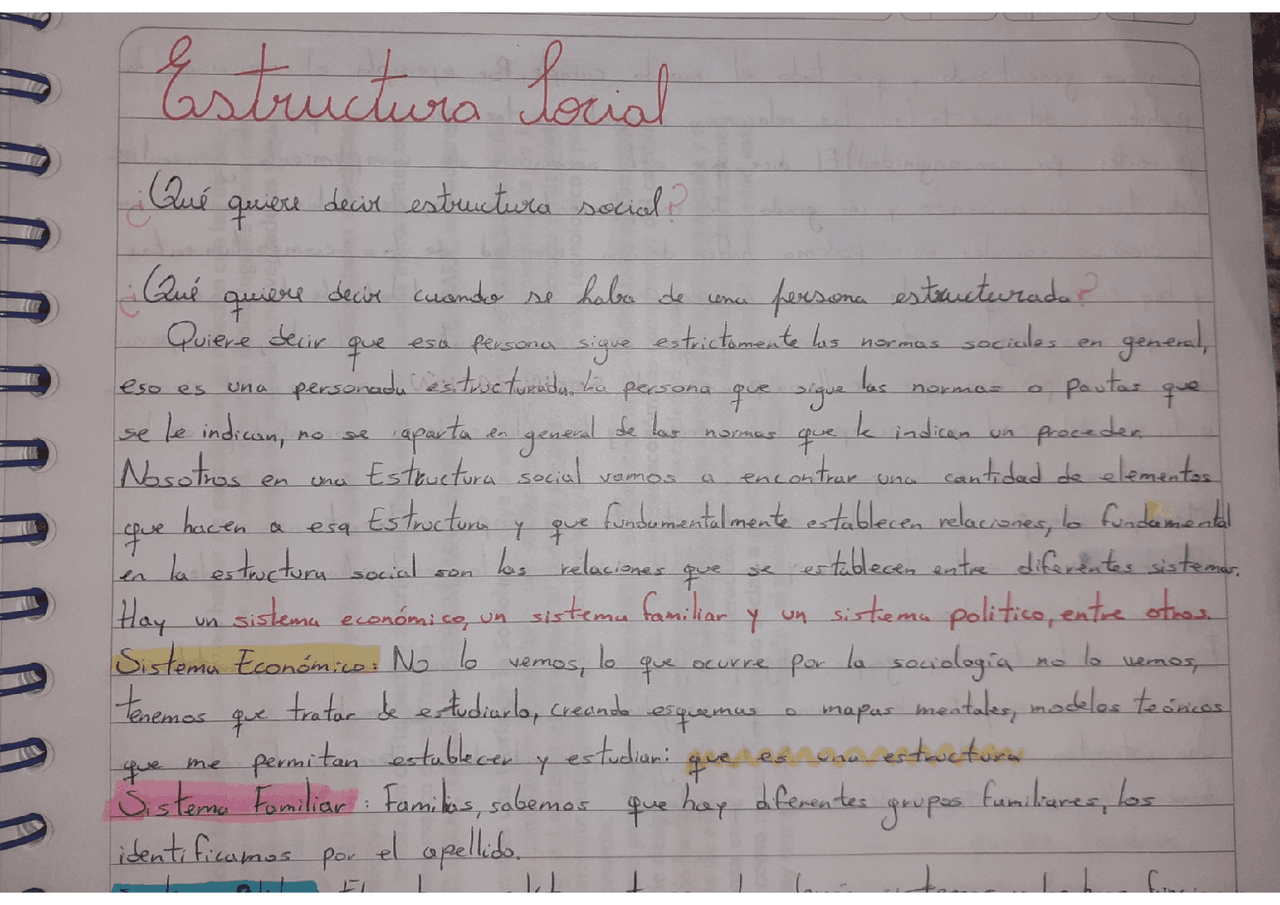 Estructura Social
¿Qué quiere decir estructura social?
¿Qué quiere decir cuando se haba de una persona estructurada?
Quiere decir que esa persona sigue estrictamente las normas sociales en general,
eso es una personada estructurada. La persona que sigue las normas o pautas que
se le indican, no se aparta en general de las normas que le indican un proceder.
Nosotros en una Estructura social vamos a encontrar una cantidad de elementos
que hacen a esa Estructura y que fundamentalmente establecen relaciones, lo fundamental
en la estructura social son las relaciones que se establecen entre diferentes sistemas.
Hay un sistema económico, un sistema familiar y un sistema politico, entre otros.
Sistema Económico: No lo vemos, lo que ocurre por la sociología no lo vemos,
tenemos que tratar de estudiarlo, creando esquemas o mapas mentales, modelos teóricos
que me permitan establecer y estudiar: que es una estructura
Sistema Familiar: Familias, sabemos que hay diferentes grupos familiares, los
identificamos por el apellido.